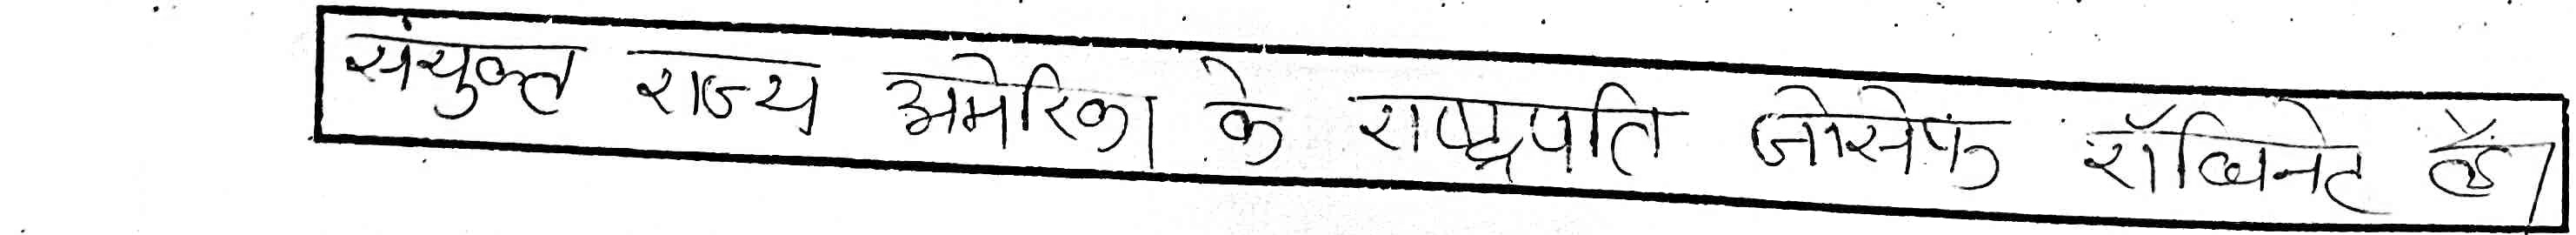 संयुक्त राज्य अमेरिका के राष्ट्रपति जोसेफ रॉबिनेट हैं।